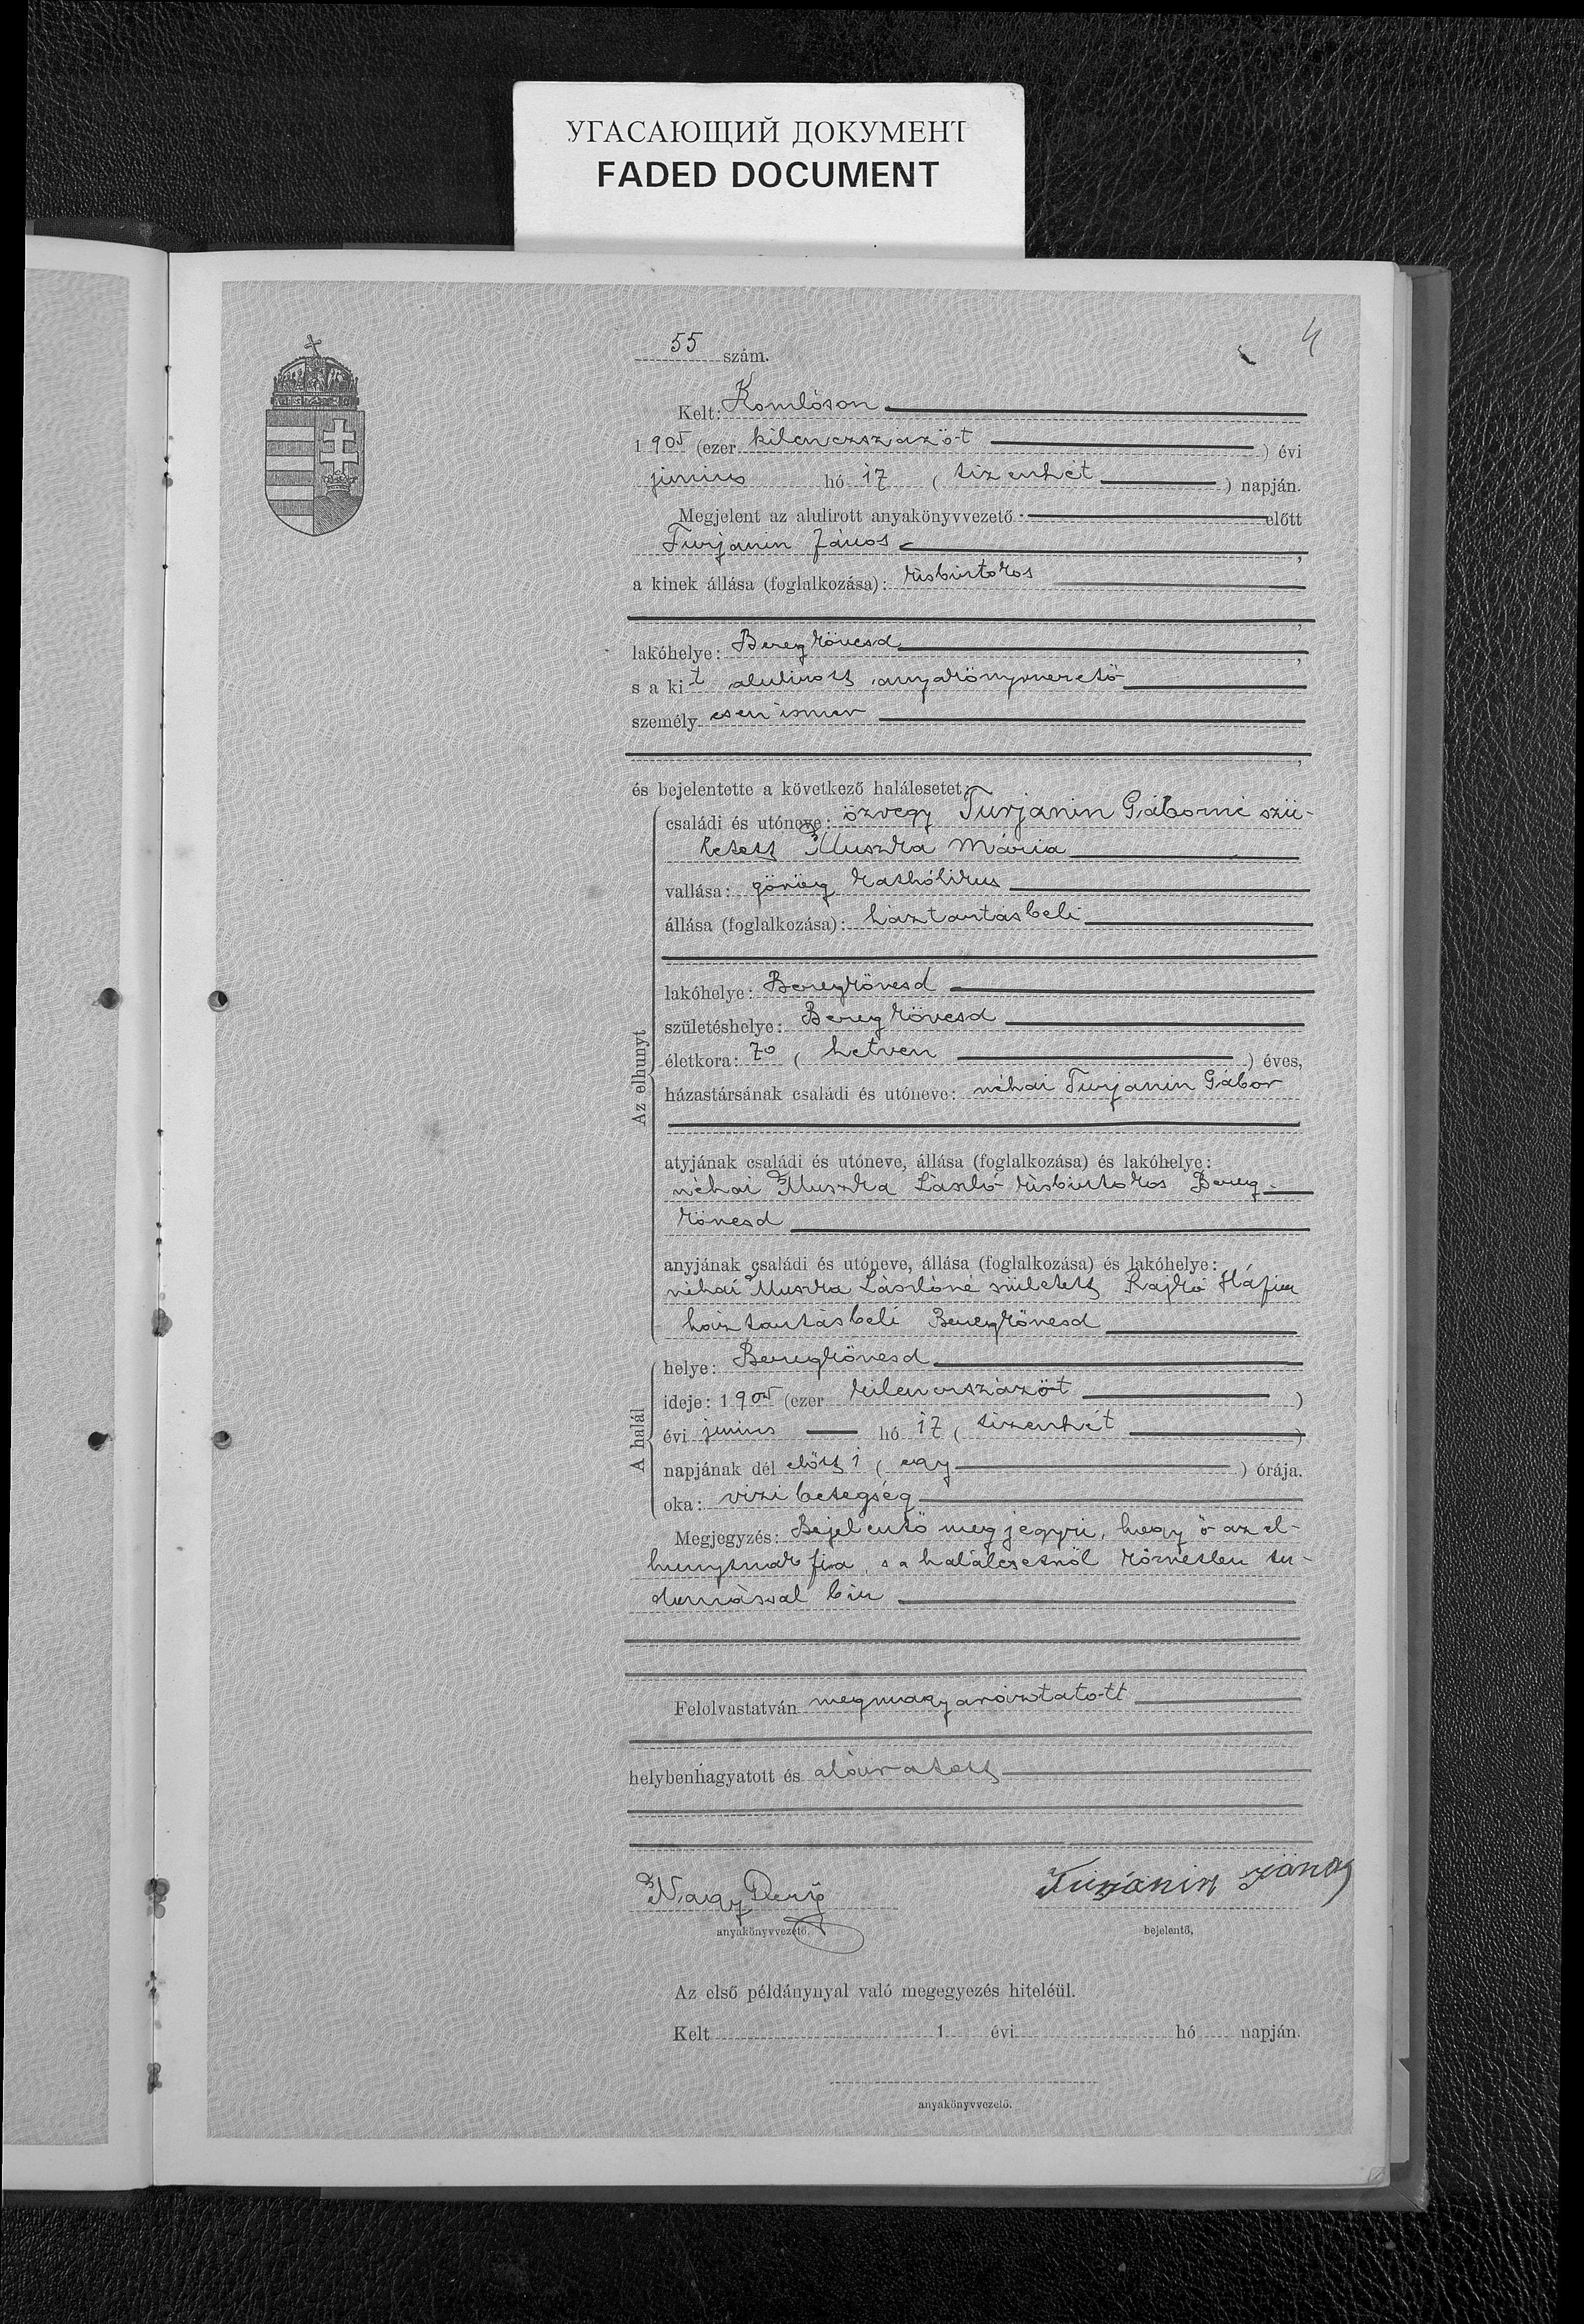 УГАСАЮЩИЙ ДОКУМЕНТ
FADED DOCUMENT
55 szám.
4
Kelt: Komlóson
1905 (ezer kilenczszázöt ) évi
junius hó 17 ( tizenhét ) napján.
Megjelent az alulirott anyakönyvvezető előtt
Turjanin János ,
a kinek állása (foglalkozása): kisbirtokos
,
lakóhelye: Beregkövesd ,
s a kit alulirott anyakönyvvezető
személyesen ismer
,
és bejelentette a következő halálesetet:
Az elhunyt
családi és utóneve: özvegy Turjanin Gáborné szü-
letett Muszka Mária
vallása: görög katholikus
állása (foglalkozása): háztartásbeli
lakóhelye: Beregkövesd
születéshelye: Beregkövesd
életkora: 70 ( hetven ) éves,
házastársának családi és utóneve: néhai Turjanin Gábor
atyjának családi és utóneve, állása (foglalkozása) és lakóhelye:
néhai Muszka László kisbirtokos Bereg-
kövesd
anyjának családi és utóneve, állása (foglalkozása) és lakóhelye:
néhai Muszka Lászlóné született Rajkó Háfia
háztartásbeli Beregkövesd
A halál
helye: Beregkövesd
ideje: 1905 (ezer kilenczszázöt )
évi junius hó 17 ( tizenhét )
napjának dél előtt 1 ( egy ) órája.
oka: vizi betegség
Megjegyzés: Bejelentő megjegyzi, hogy ő az el-
hunytnak fia, s a halálesetről közvetlen tu-
domással bir
Felolvastatván megmagyaráztatott
helybenhagyatott és aláiratott
Nagy Turjanin János
anyakönyvvezető. bejelentő,
Az első példánynyal való megegyezés hiteléül.
Kelt 1 évi hó napján.
anyakönyvvezető.